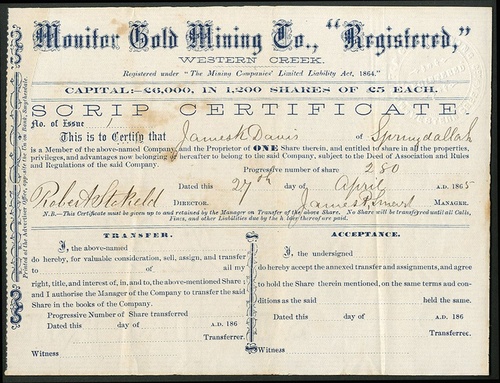 Monitor Gold Mining Co., "Registered,"
WESTERN CREEK.
Registered under "The Mining Companies' Limited Liability Act, 1864."
CAPITAL:—£6,000, IN 1,200 SHARES OF £5 EACH.
SCRIP CERTIFICATE
No. of Issue 1
This is to Certify that James Davis of Springdallah
is a Member of the above-named Company, and the Proprietor of ONE Share therein, and entitled to share in all the properties,
privileges, and advantages now belonging or hereafter to belong to the said Company, subject to the Deed of Association and Rules
and Regulations of the said Company.
Progressive number of share 280
Dated this 27th day of April A.D. 1865
Robert DIRECTOR. James MANAGER.
N.B.—This Certificate must be given up to and retained by the Manager on Transfer of the above Share. No Share will be transferred until all Calls,
Fines, and other Liabilities due by the late thereof are paid.
TRANSFER.
I, the above-named
do hereby, for valuable consideration, sell, assign, and transfer
to of all my
right, title, and interest of, in, and to, the above-mentioned Share
and I authorise the Manager of the Company to transfer the said
Share in the books of the Company.
Progressive Number of Share transferred
Dated this day of A.D. 186
Transferrer.
Witness
ACCEPTANCE.
I, the undersigned
do hereby accept the annexed transfer and assignments, and agree
to hold the Share therein mentioned, on the same terms and con-
ditions as the said held the same.
Dated this day of A.D. 186
Transferree.
Witness
Printed at the Advertiser Office, opposite the Union Bank, Smythesdale